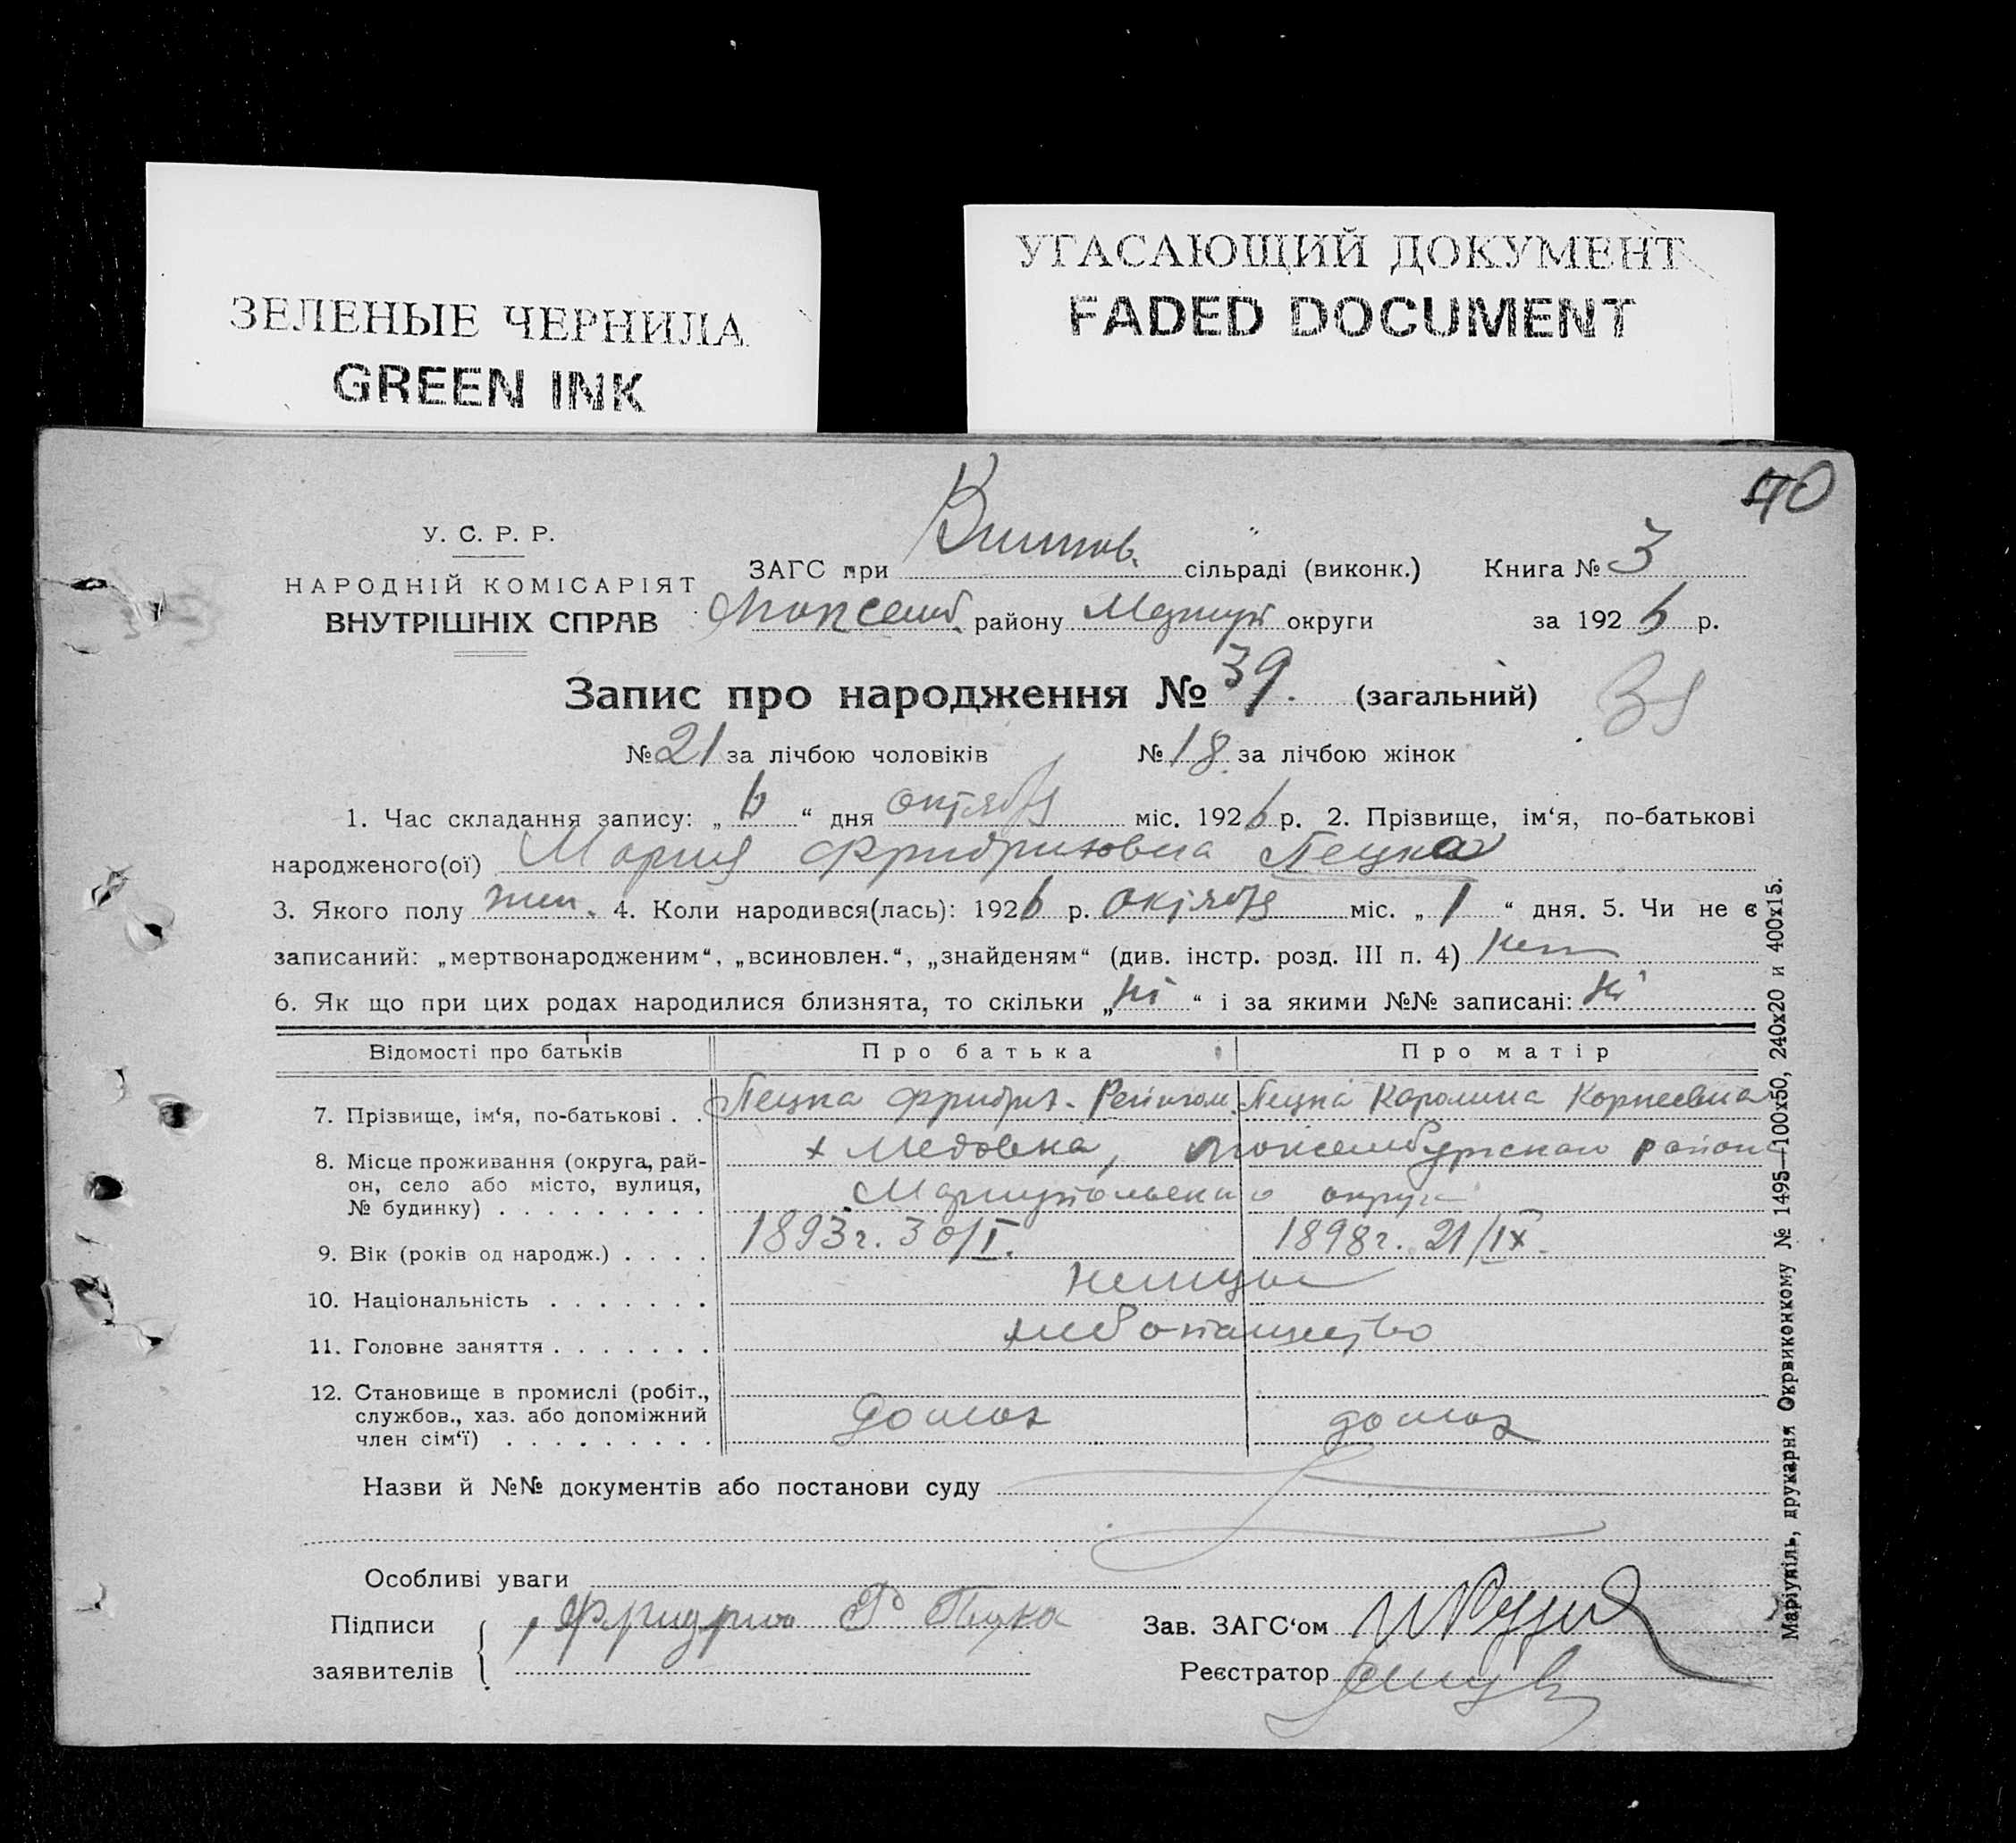 ЗЕЛЕНЫЕ ЧЕРНИЛА
GREEN INK
УГАСАЮЩИЙ ДОКУМЕНТ
FADED DOCUMENT
40
У. С. Р. Р.
НАРОДНІЙ КОМІСАРІЯТ
ВНУТРІШНІХ СПРАВ
ЗАГС при сільраді (виконк.) Книга № 3
району округи за 1926 р.
Запис про народження № 39. (загальний)
39
№ 21 за лічбою чоловіків № 18 за лічбою жінок
1. Час складання запису: „6“ дня октября міс. 1926 р. 2. Прізвище, ім‘я, по-батькові
народженого(ої) Мария Фридриховна Пецка
3. Якого полу жен. 4. Коли народився(лась): 1926 р. октября міс. „1“ дня. 5. Чи не є
записаний: „мертвонародженим“, „всиновлен.“, „знайденям“ (див. інстр. розд. III п. 4) нет
6. Як що при цих родах народилися близнята, то скільки „ні“ і за якими №№ записані: ні
Відомості про батьків Про батька Про матір
7. Прізвище, ім‘я, по-батькові . . Пецка Фридрих Пецка Каролина Корнеевна
8. Місце проживання (округа, рай-
он, село або місто, вулиця,
№ будинку) . . . . . . . . .
х Медовка, люксембургскаго район
Мариупольскаго округа
9. Вік (років од народж.) . . . . 1893г. 30/I. 1898г. 21/IX.
10. Національність . . . . . . . немцы
11. Головне заняття . . . . . . . хлебопашество
12. Становище в промислі (робіт.,
службов., хаз. або допоміжний
член сім‘ї) . . . . . . . . .
домоз домоз
Назви й №№ документів або постанови суду
Особливі уваги
Підписи
заявителів
Фридрих Р Пецка
Зав. ЗАГС‘ом
Реєстратор
Маріупіль, друкарня Окрвиконкому № 1495—100х50, 240х20 и 400х15.